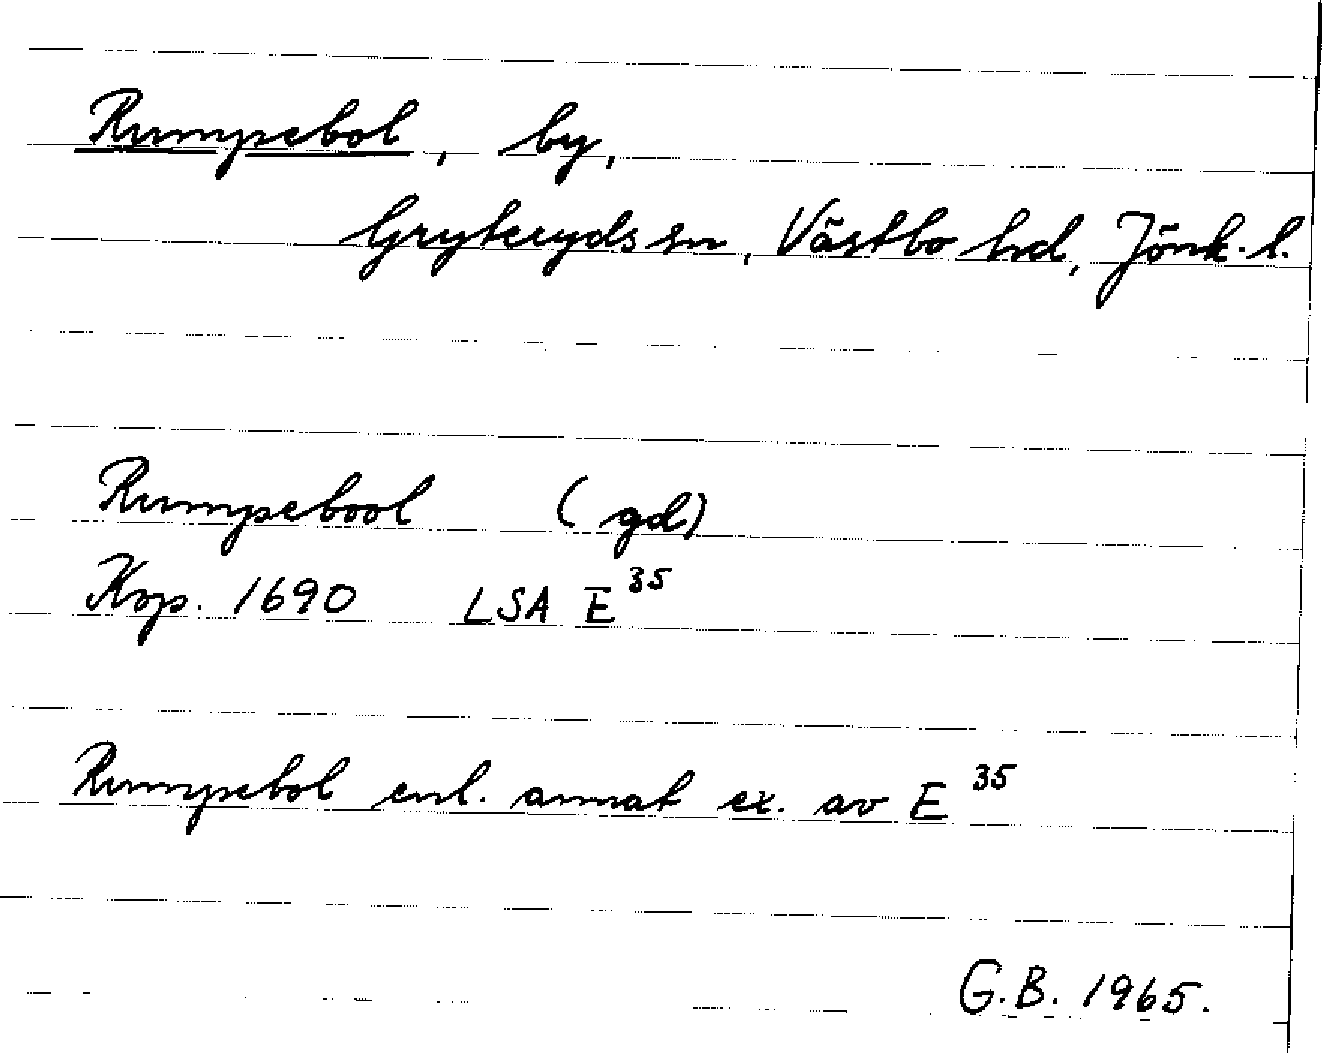 Rumpebol, by,
Gryteryds sn, Västbo hd, Jönk. l.
Rumpebool (gd)
Kop. 1690 LSA E 35
Rumpebol enl. annat ex. av E 35
G.B. 1965.